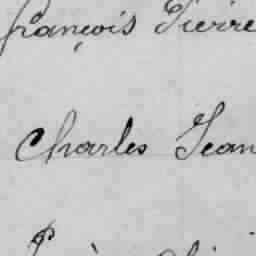 françois Pierre
Charles Jean